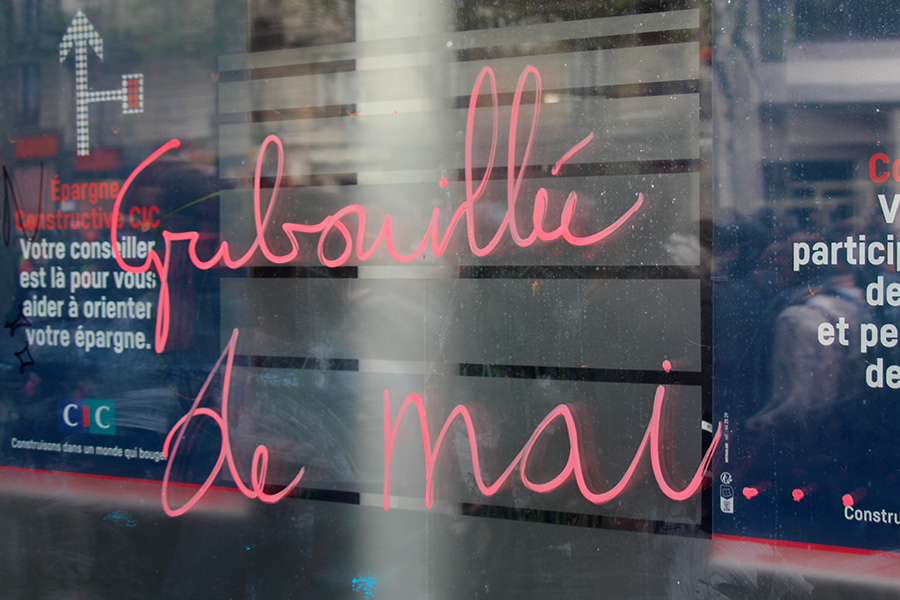 Épargne
Constructive CIC
Votre conseiller
est là pour vous
aider à orienter
votre épargne.
CIC
Construisons dans un monde qui bouge.
Gribouillée
de mai....
particip
de
et pe
de
Constru